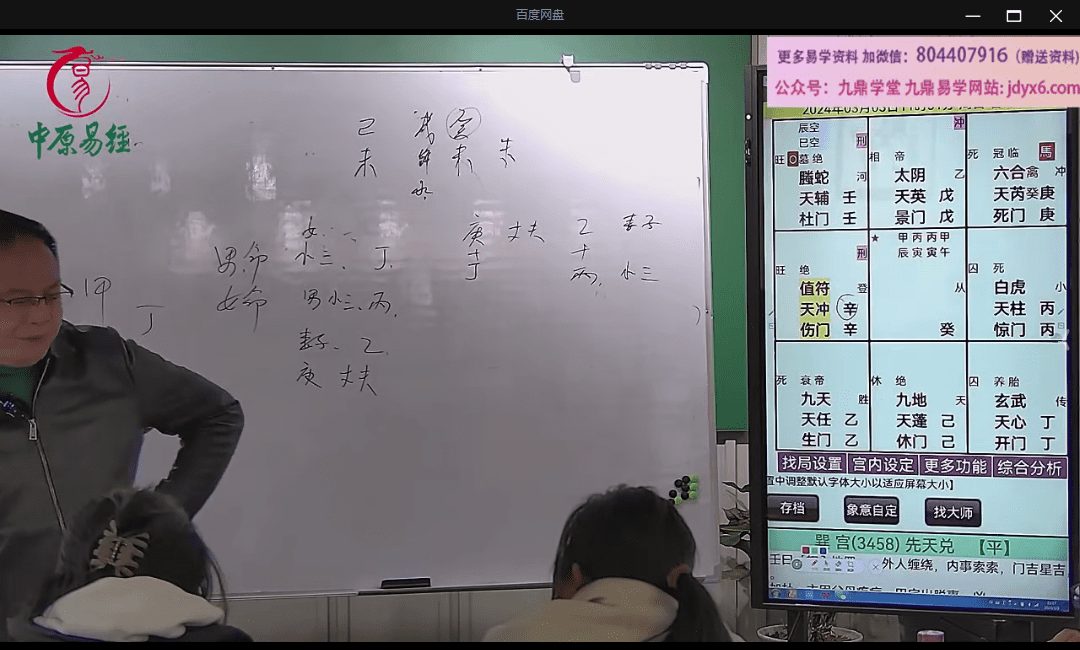 百度网盘
更多易学资料 加微信：804407916（赠送资料）
公众号：九鼎学堂 九鼎易学网站: jdyx6.com
易
中原易经
己
未
癸
未
未
女
男命 小三、丁
女命 男小三、丙
妻子、乙
庚 丈夫
庚 丈夫 乙 妻子
十 十
丁 丙、小三
甲
丁
辰空
巳空
刑
旺 墓绝
螣蛇
河
天辅 壬
杜门 壬
冲
相 帝
太阴 乙
天英 戊
景门 戊
馬
死 冠临
六合禽 冲
天芮癸庚
死门 庚
刑
旺 绝
值符 登
天冲 辛
伤门 辛
甲丙丙甲
辰寅寅午
从
癸
囚 死
白虎 小
天柱 丙
惊门 丙
死 衰帝
九天 胜
天任 乙
生门 乙
休 绝
九地 天
天蓬 己
休门 己
囚 养胎
玄武 传
天心 丁
开门 丁
找局设置 宫内设定 更多功能 综合分析
置中调整默认字体大小以适应屏幕大小】
存档 象意自定 找大师
巽宫(3458) 先天兑 【平】
外人缠绕，内事索索，门吉星吉